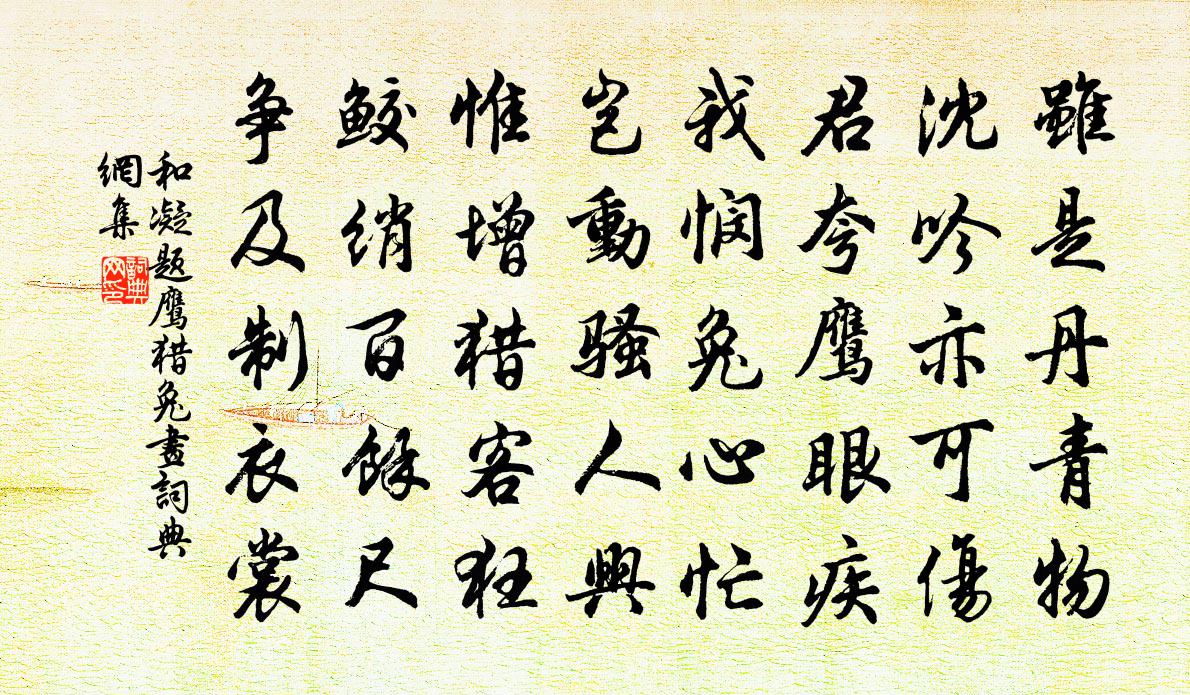 雖是丹青物
沈吟亦可傷
君夸鷹眼疾
我悯兔心忙
岂動騷人興
惟增猎客狂
鲛绡百餘尺
争及制衣裳
和凝题鷹猎兔畫詞典
網集
詞典網印